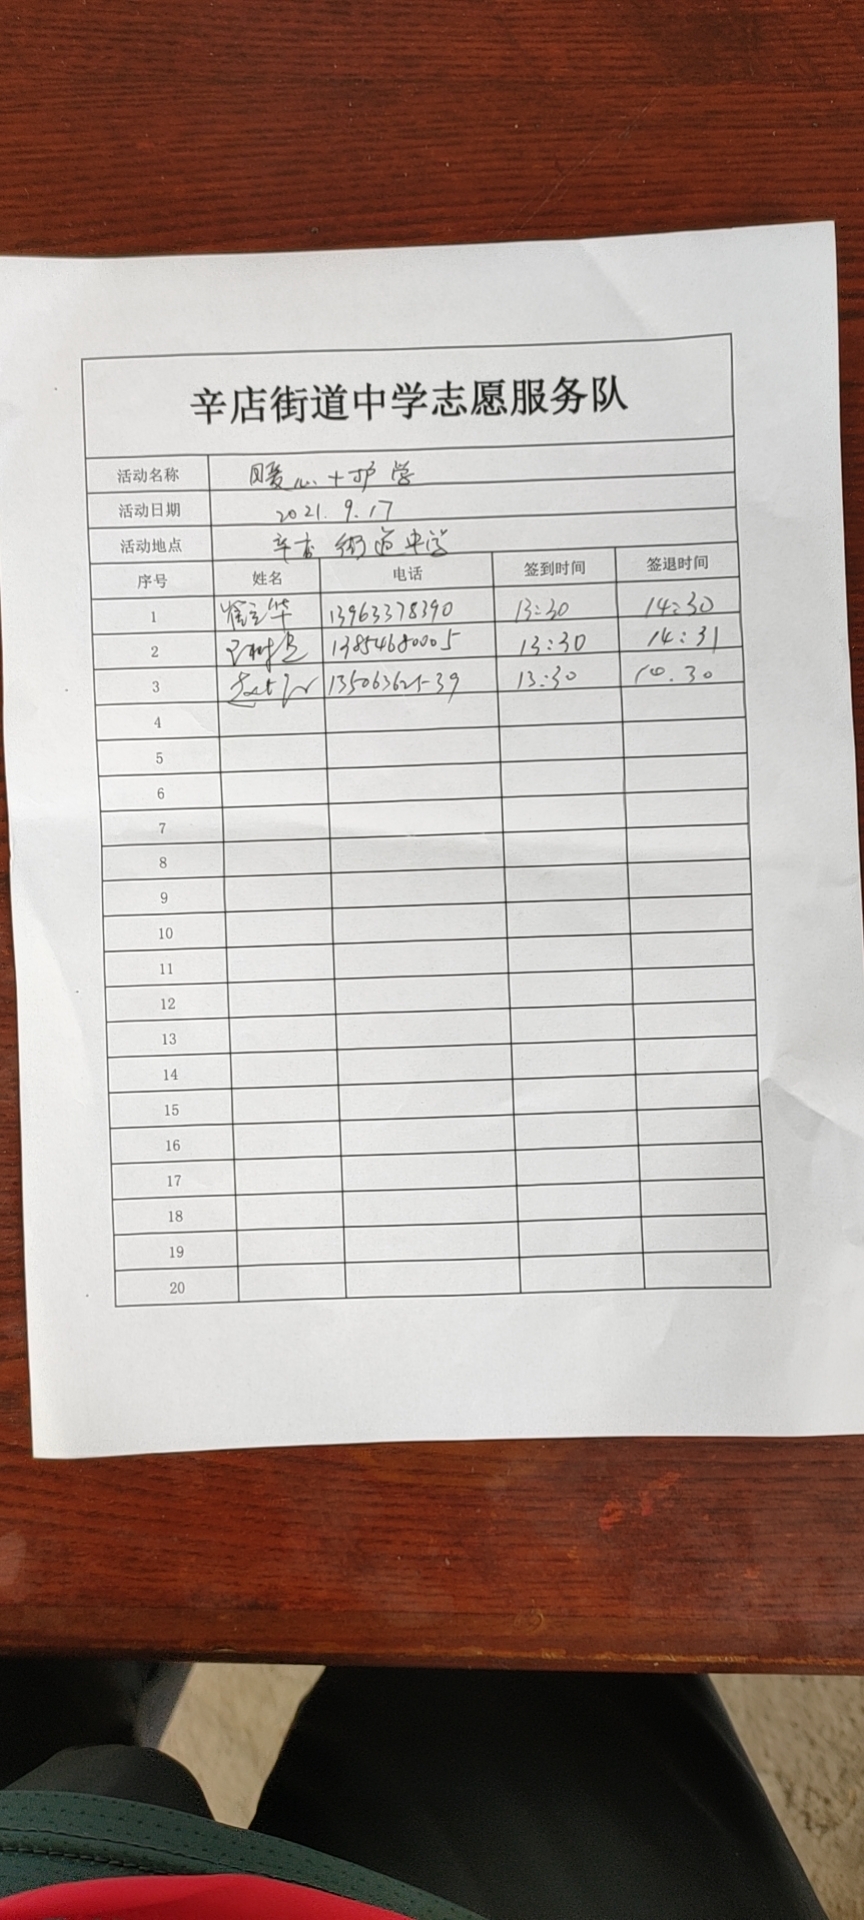 辛店街道中学志愿服务队
活动名称 暖心+护学
活动日期 2021.9.17
活动地点 辛店街道中学
序号 姓名 电话 签到时间 签退时间
1 13963378390 13:30 14:30
2 13854680005 13:30 14:31
3 13506362539 13:30
4
5
6
7
8
9
10
11
12
13
14
15
16
17
18
19
20